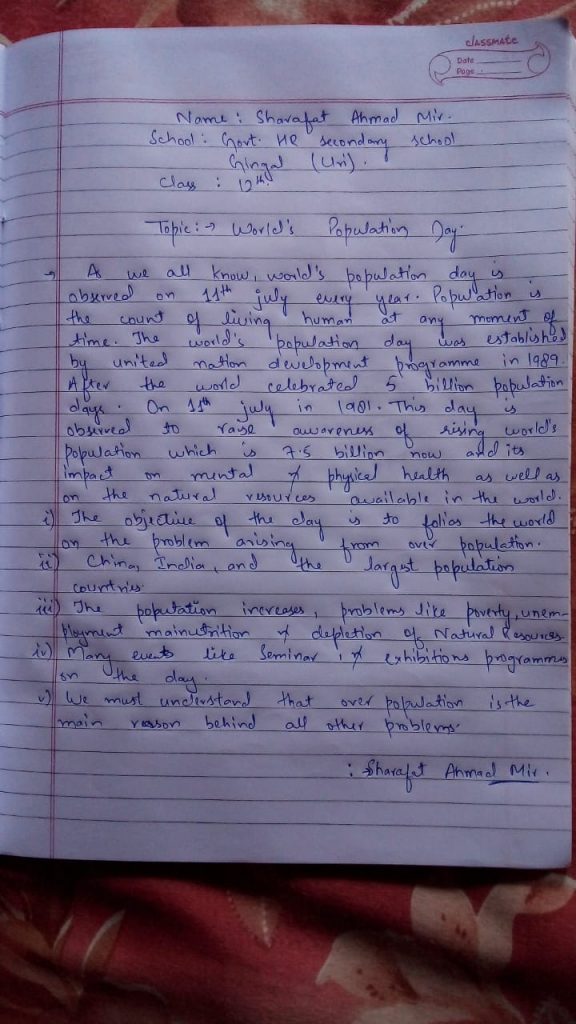 classmate
Date
Page
Name : Sharafat Ahmad Mir.
School : Govt. HR secondary school
Gingal (Uri).
Class : 12th.
Topic :→ World's Population Day.
→ As we all know, world's population day is
observed on 11th july every year. Population is
the count of living human at any moment of
time. The world's population day was established
by united nation development programme in 1989.
After the world celebrated 5 billion population
days. On 11th july in 1981. This day is
observed to raise awareness of rising world's
population which is 7.5 billion now and its
impact on mental & physical health as well as
on the natural resources available in the world.
i) The objective of the day is to folias the world
on the problem arising from over population.
ii) China, India, and the largest population
countries.
iii) The population increases, problems like poverty, unem-
ployment mainutrition & depletion of Natural Resources.
iv) Many events like Seminar, & exhibitions programmes
on the day.
v) We must understand that over population is the
main reason behind all other problems.
: Sharafat Ahmad Mir.